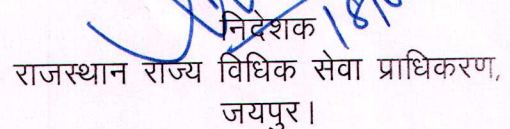 निदेशक
राजस्थान राज्य विधिक सेवा प्राधिकरण,
जयपुर।